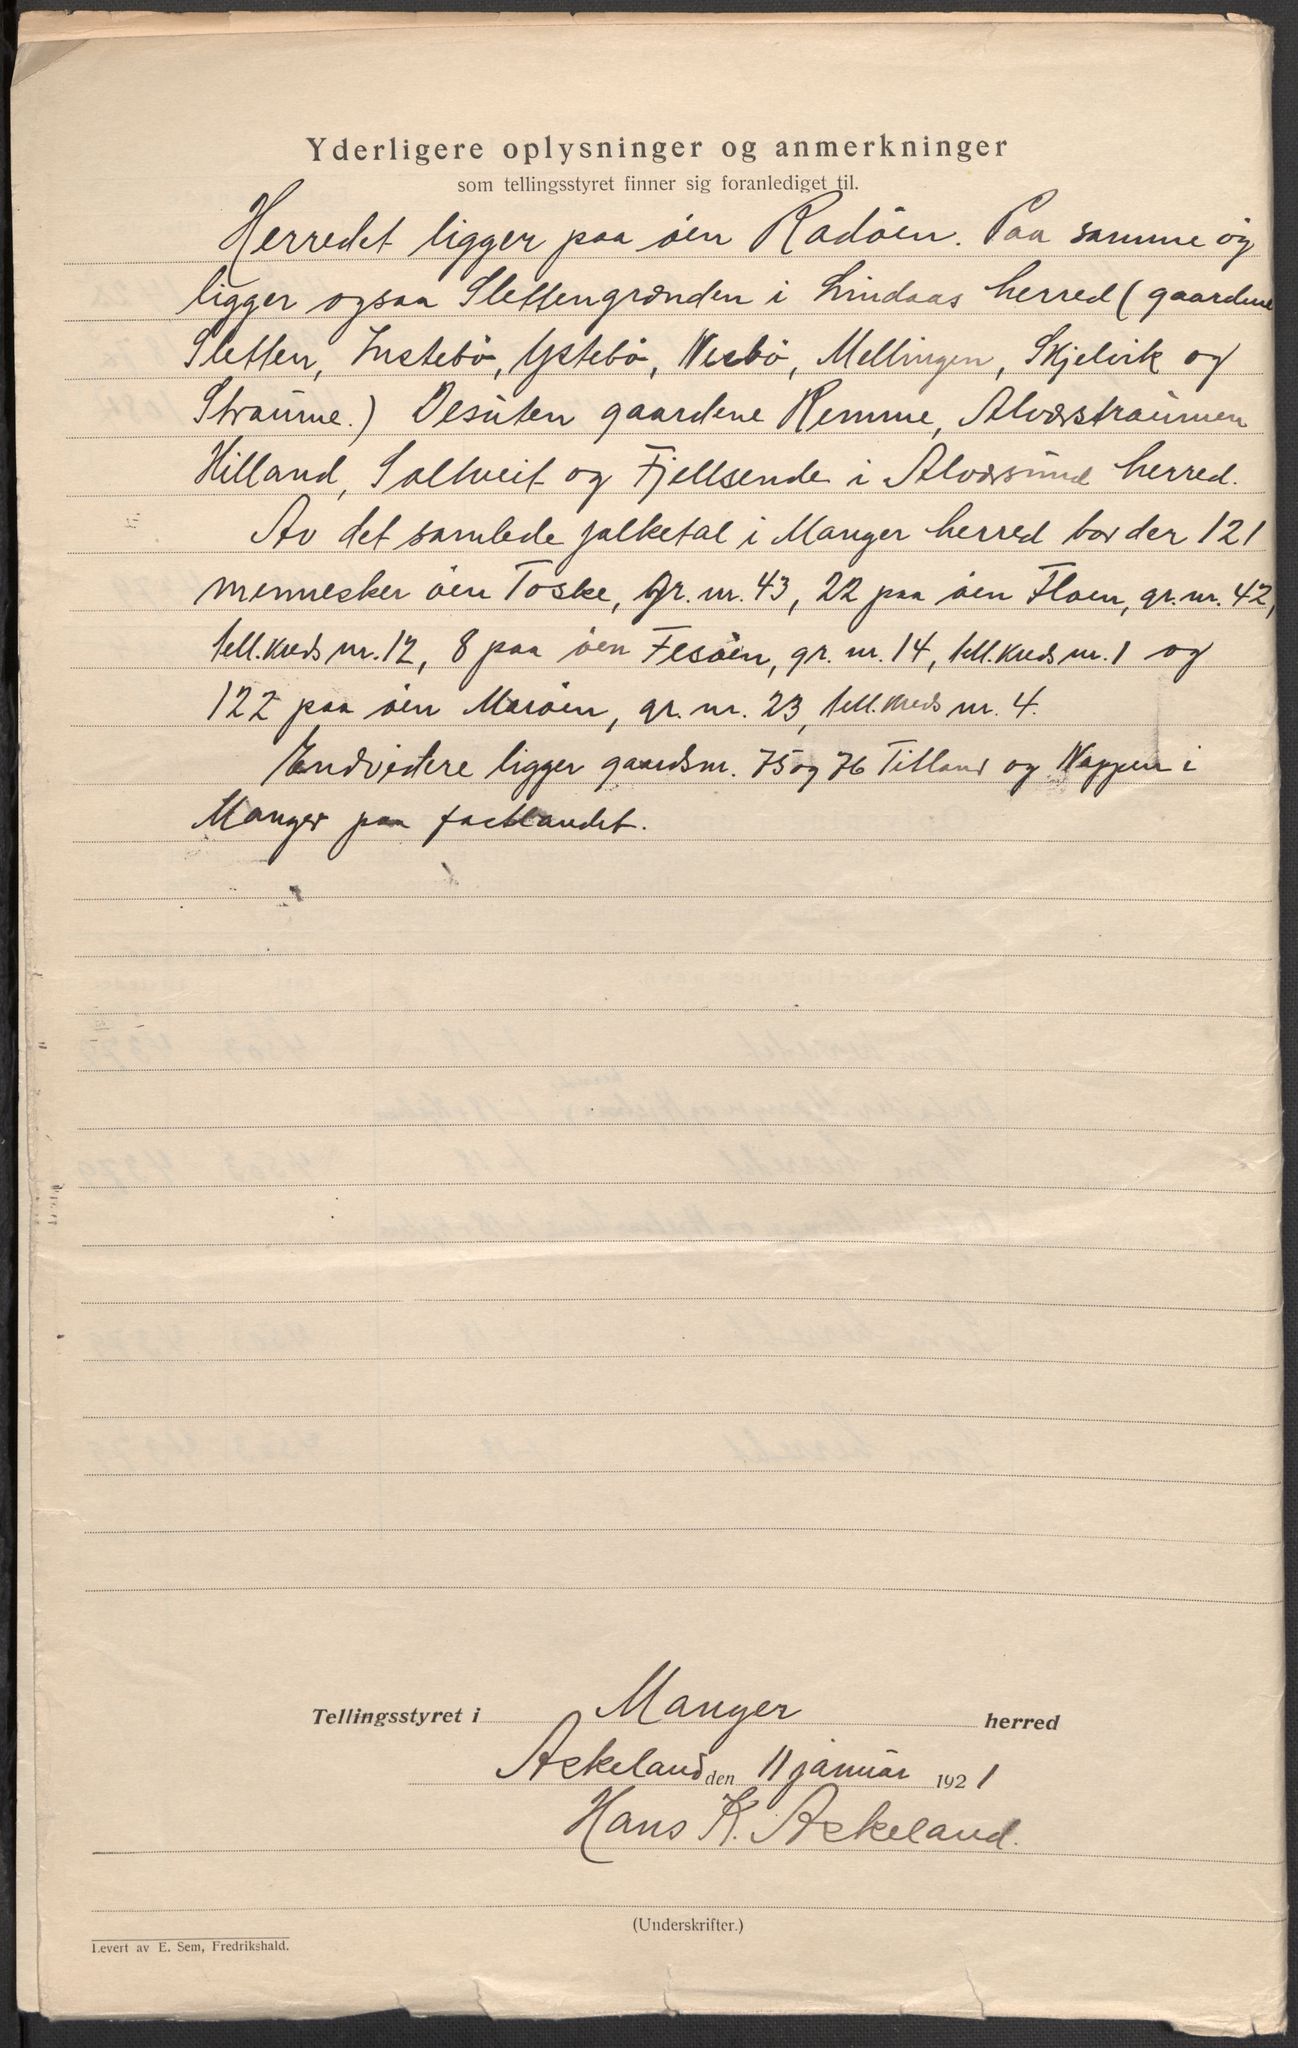 Yderligere oplysninger og anmerkninger
som tellingsstyret finner sig foranlediget til.
Herredet ligger paa öen Radöen. Paa samme öy
ligger ogsaa Slettengrænden i Lindaas herred (gaardene
Sletten, Instebö, Ystebö, Nesbö, Mellingen, Skjelvik og
Straume.) Desuten gaardene Remme, Alværstraumen
Hilland, Soltveit og Fjellsende i Alværsund herred.
Av det samlede folketal i Manger herred bor der 121
mennesker öen Toske, gr. nr. 43, 22 paa öen Floen, gr. nr. 42,
tell.kreds nr. 12, 8 paa öen Fesöen, gr. nr. 14, tell.kreds nr. 1 og
122 paa öen Maröen, gr. nr. 23, tell.kreds nr. 4.
Endvidere ligger gaardsnr. 75 og 76 Titland og Nappen i
Manger paa fastlandet.
Tellingsstyret i Manger herred
Askeland den 11 januar 1921
Hans K. Askeland.
(Underskrifter.)
Levert av E. Sem, Fredrikshald.